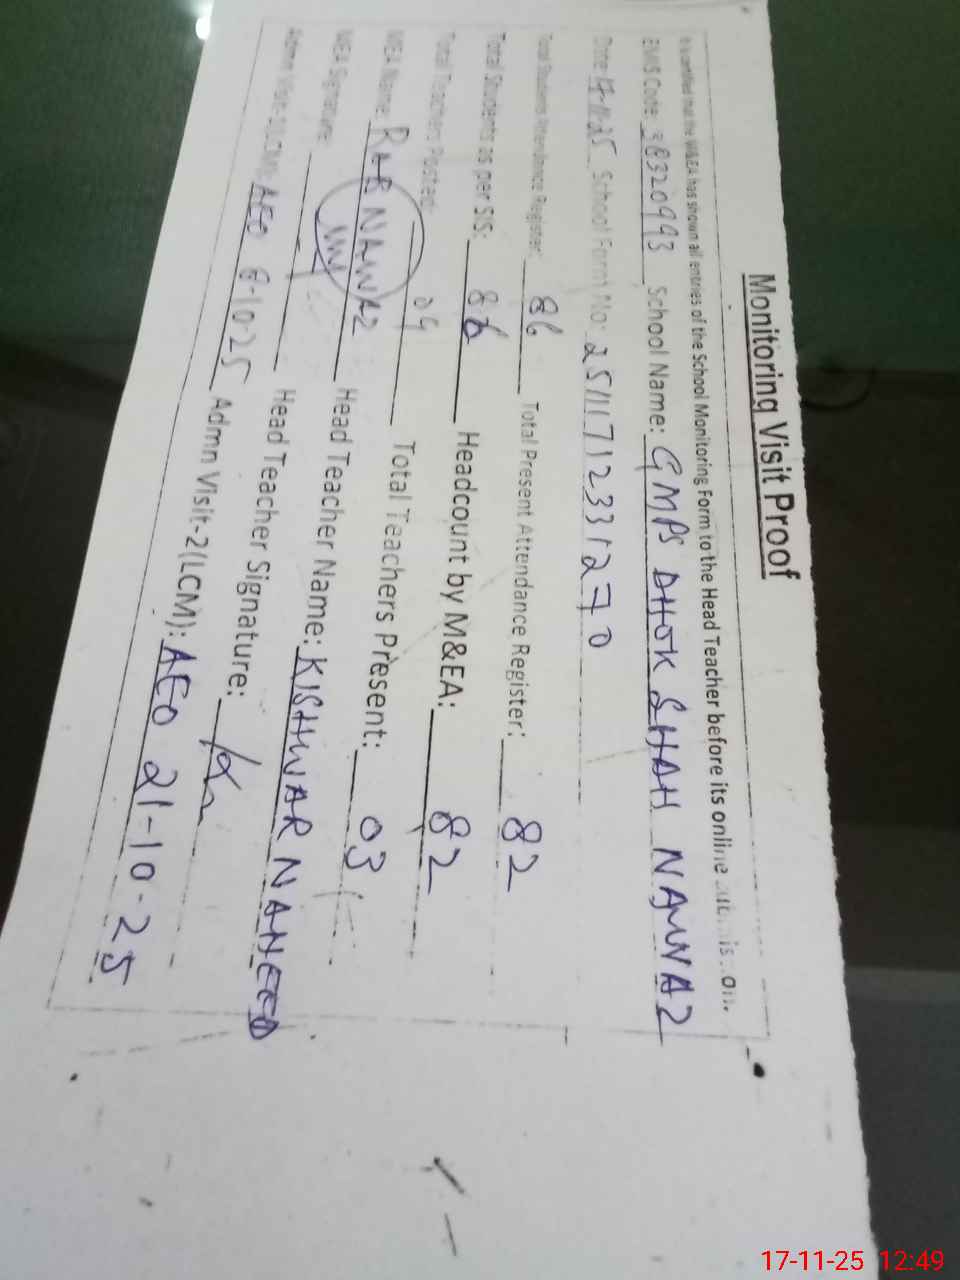 Monitoring Visit Proof
It is certified that the M&EA has shown all entries of the School Monitoring Form to the Head Teacher before its online
EMIS Code: 38320993 School Name: GMPS DHOK SHAH NAWAZ
Date 17-11-25 School Form No: 25111712331270
Total Student Attendance Register: 86 Total Present Attendance Register: 82
Total Students as per SIS: 86 Headcount by M&EA: 82
Total Teachers Posted: 04 Total Teachers Present: 03
MEA Name: RAB NAWAZ Head Teacher Name: KISHWAR NAHEED
MEA Signature: Head Teacher Signature:
Admn Visit-1(LCM): AEO 6-10-25 Admn Visit-2(LCM): AEO 21-10-25
17-11-25 12:49